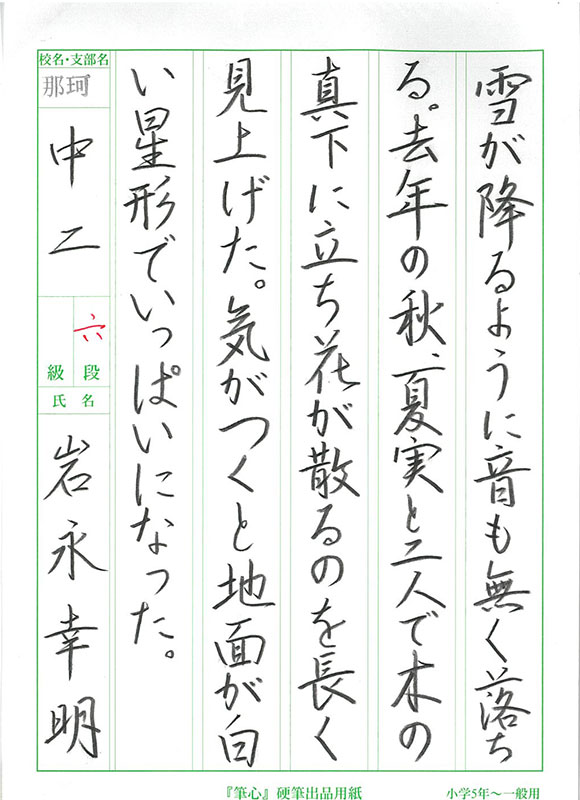 雪が降るように音も無く落ち
る。去年の秋、夏実と二人で木の
真下に立ち花が散るのを長く
見上げた。気がつくと地面が白
い星形でいっぱいになった。
校名・支部名
那珂
中二
六
級 段
氏名
岩永幸明
『筆心』硬筆出品用紙
小学5年～一般用